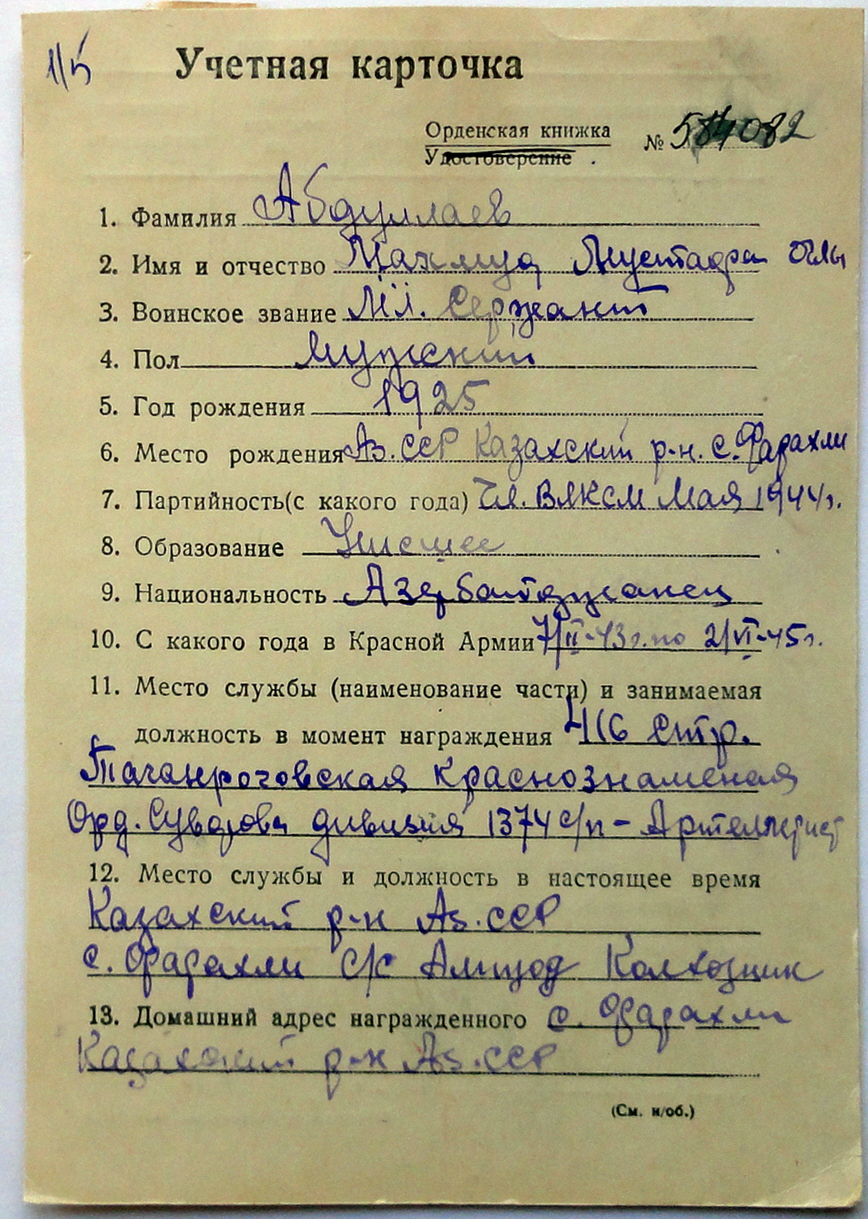 1/5
Учетная карточка
Орденская книжка № 584082
Удостоверение .
1. Фамилия Абдуллаев
2. Имя и отчество Махмуд Мустафа оглы
3. Воинское звание Мл. Сержант
4. Пол Мужский
5. Год рождения 1925
6. Место рождения Аз. ССР Казахский р-н. с. Фарахли
7. Партийность(с какого года) Чл. ВЛКСМ Мая 1944г.
8. Образование Нисшее
9. Национальность Азербайджанец
10. С какого года в Красной Армии 7/II-43г. по 2/VI-45г.
11. Место службы (наименование части) и занимаемая
должность в момент награждения 416 Стр.
Таганроговская Краснознаменая
Орд. Суворова дивизия 1374 с/п - Артеллерист
12. Место службы и должность в настоящее время
Казахский р-н Аз. ССР
с. Фарахли с/с Колхозник
13. Домашний адрес награжденного с. Фарахли
Казахский р-н Аз. ССР
(См. н/об.)